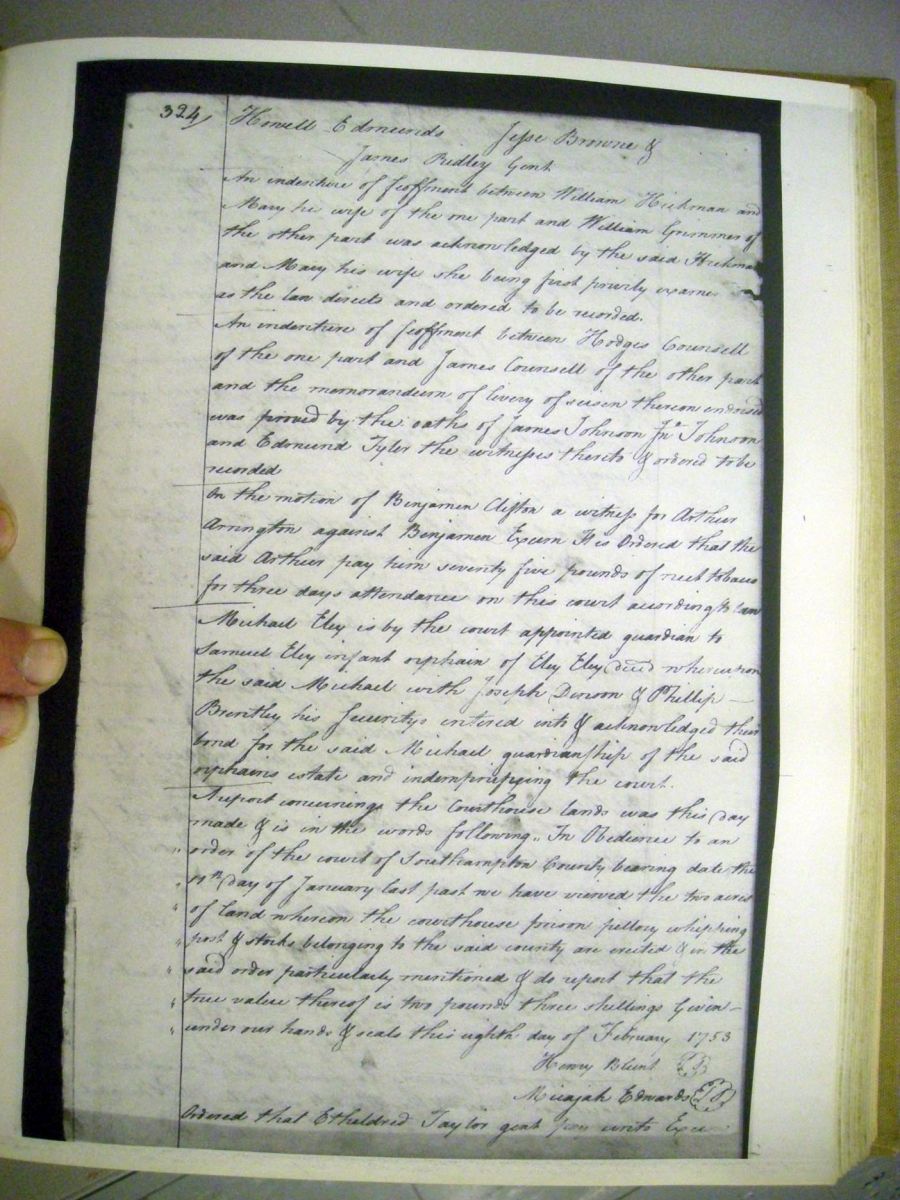 324/ Howell Edmunds Jesse Browne &
James Ridley Gent
An indenture of feoffment between William Hickman and
Mary his wife of the one part and William Grimmer of
the other part was acknowledged by the said Hickman
and Mary his wife she being first privily exame
as the law directs and ordered to be recorded.
An indenture of feoffment between Hodges Counsell
of the one part and James Counsell of the other part
and the memorandum of livery of seisen thereon endorsed
was proved by the oaths of James Johnson Jno Johnson
and Edmund Tyler the witnesses thereto & ordered to be
recorded
On the motion of Benjamen Clifton a witness for Arthur
Arrington against Benjamen Exum It is Ordered that the
said Arthur pay him seventy five pounds of neet tobacco
for three days attendance on this court according to law
Michael Eley is by the court appointed guardian to
Samuel Eley infant orphain of Eley Eley decd whereupon
the said Michael with Joseph & Phillip —
Brantley his Securitys entered into & acknowledged their
bond for the said Michael guardianship of the said
orphains estate and indemnifying the court.
A report concerning the Courthouse lands was this day
made & is in the words following,, In Obedience to an
" order of the court of Southampton County bearing date the
" 11th day of January last past we have viewed the two acres
" of Land whereon the courthouse prison pillory whipping
" post & stocks belonging to the said county are erected & in the
" said order particularly mentioned & do report that the
" true value thereof is two pounds three shillings Given —
" under our hands & seals this eighth day of February 1753
Henry Blunt
Micajah Edwards
Ordered that Etheldred Taylor gent